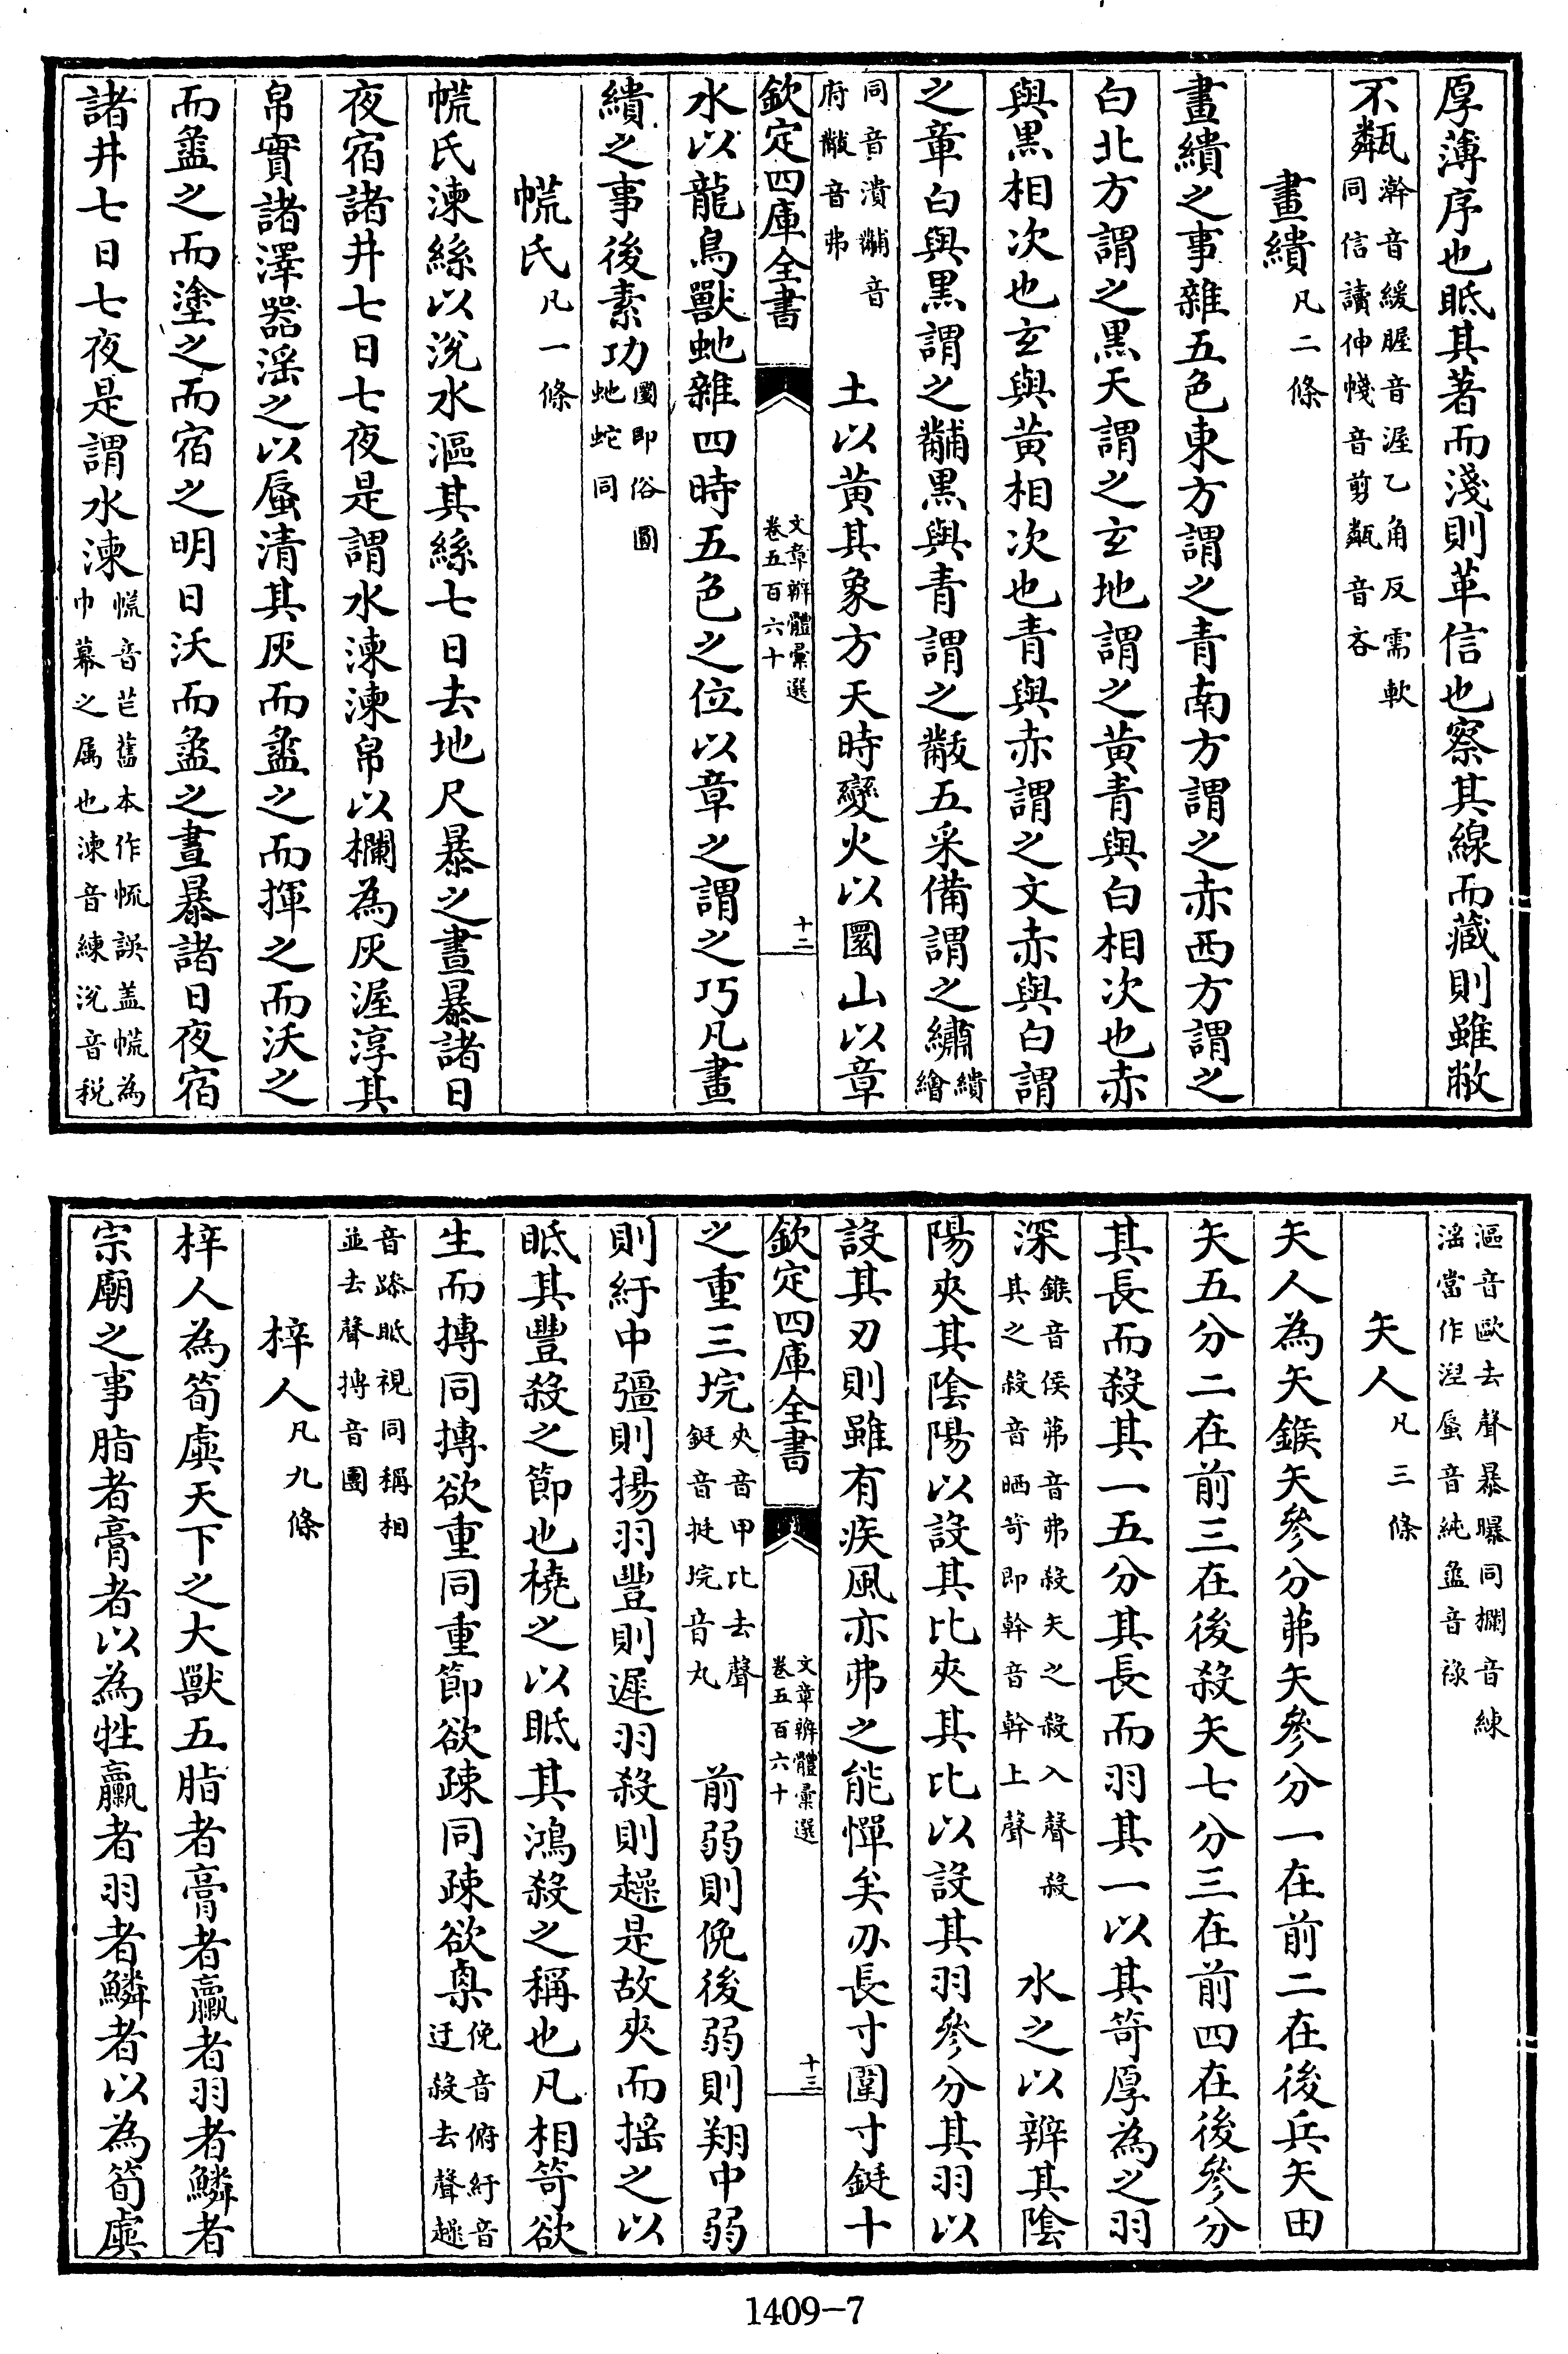 厚薄序也眡其著而淺則革信也察其線而藏則雖敝
不甐瀚音緩腥音渥乙角反需軟
同信讀伸帴音剪甐音吝
畫繢凡二條
畫繢之事雜五色東方謂之青南方謂之赤西方謂之
白北方謂之黑天謂之玄地謂之黃青與白相次也赤
與黑相次也玄與黃相次也青與赤謂之文赤與白謂
之章白與黑謂之黼黑與青謂之黻五采備謂之繡繢
繪
同音潰黼音
府黻音弗
土以黃其象方天時變火以圜山以章
欽定四庫全書
文章辨體彙選
卷五百六十
十二
水以龍鳥獸虵雜四時五色之位以章之謂之巧凡畫
繢之事後素功圜即俗圓
虵蛇同
㡆氏凡一條
㡆氏湅絲以涚水漚其絲七日去地尺暴之晝暴諸日
夜宿諸井七日七夜是謂水湅湅帛以欄為灰渥淳其
帛實諸澤器滛之以蜃清其灰而盝之而揮之而沃之
而盝之而塗之而宿之明日沃而盝之晝暴諸日夜宿
諸井七日七夜是謂水湅㡆音芒舊本作㡃誤盖㡆為
巾幕之属也湅音練涚音税
漚音歐去聲暴曝同欄音練
滛當作湼蜃音純盝音祿
矢人凡三條
矢人為矢鍭矢參分茀矢參分一在前二在後兵矢田
矢五分二在前三在後殺矢七分三在前四在後參分
其長而殺其一五分其長而羽其一以其笴厚為之羽
深鍭音侯茀音弗殺矢之殺入聲殺
其之殺音晒笴即幹音幹上聲
水之以辨其陰
陽夾其陰陽以設其比夾其比以設其羽參分其羽以
設其刃則雖有疾風亦弗之能憚矣刃長寸圍寸鋌十
欽定四庫全書
文章辨體彙選
卷五百六十
十三
之重三垸夾音甲比去聲
鋌音挺垸音丸
前弱則俛後弱則翔中弱
則紆中彊則揚羽豐則遲羽殺則趮是故夾而揺之以
眡其豐殺之節也橈之以眡其鴻殺之稱也凡相笴欲
生而摶同摶欲重同重節欲疎同疎欲㮚俛音俯紆音
迂殺去聲趮
音躁眡視同稱相
並去聲摶音團
梓人凡九條
梓人為筍虡天下之大獸五脂者膏者臝者羽者鱗者
宗廟之事脂者膏者以為牲臝者羽者鱗者以為筍虡
1409-7